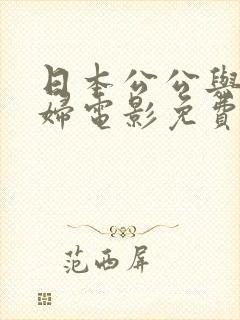 日本公公與
婦電影免費
范西屏